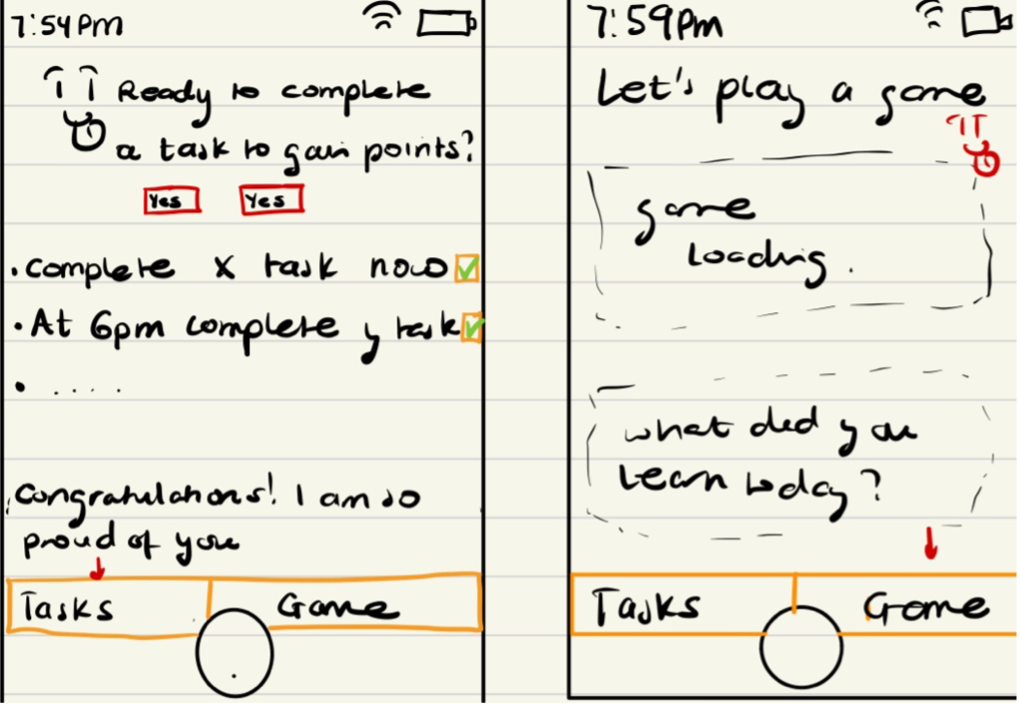 7:54 Pm
Ready to complete
a task to gain points?
Yes Yes
• Complete X task now
• At 6pm complete y task
• . . . .
Congratulations! I am so
proud of you
Tasks Game
7:59 Pm
Let's play a game
game
Loading .
what did you
learn today?
Tasks Game